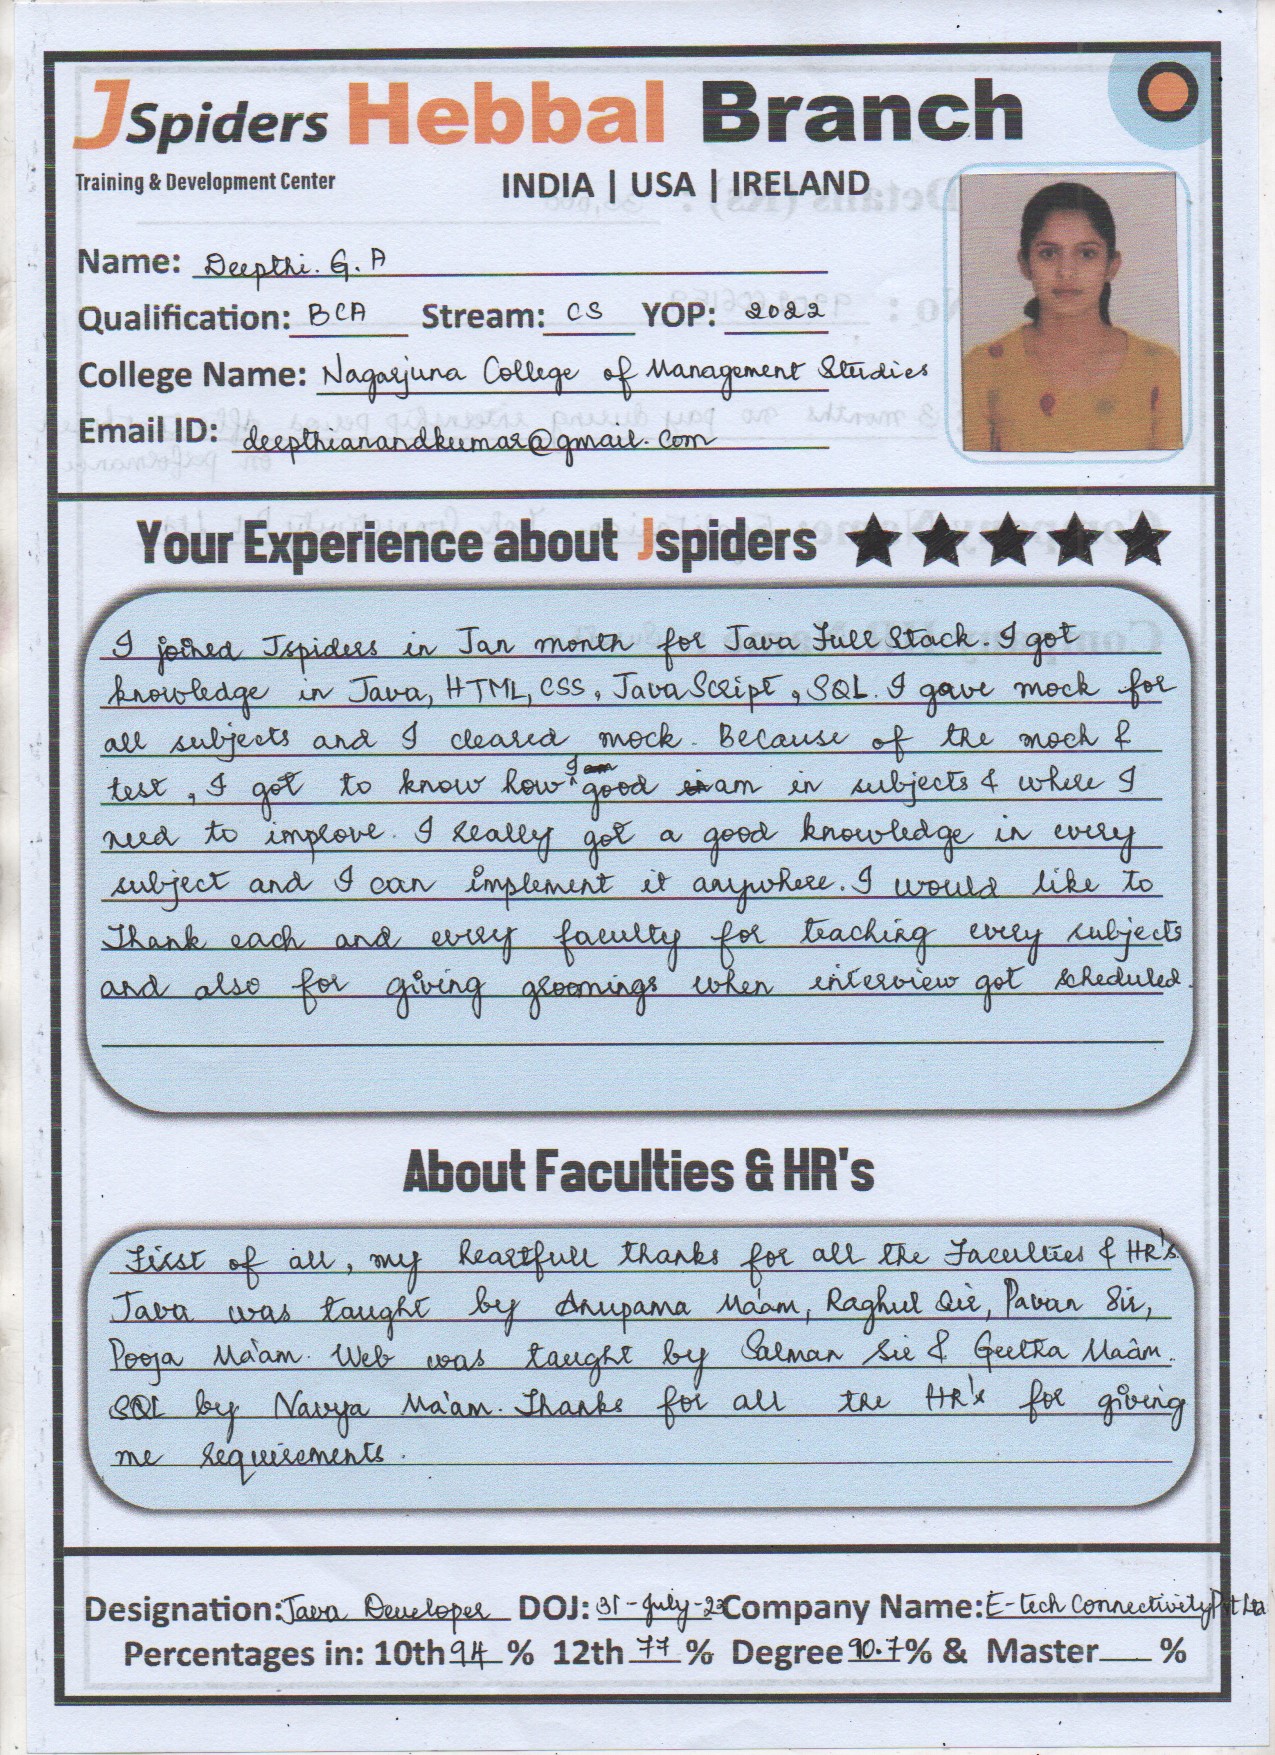 JSpiders Hebbal Branch
Training & Development Center
INDIA | USA | IRELAND
Name: Deepthi. G. A
Qualification: BCA Stream: CS YOP: 2022
College Name: Nagarjuna College of Management Studies
Email ID: deepthianandkumar@gmail.com
Your Experience about Jspiders ★★★★★
I joined Jspiders in Jan month for Java Full Stack. I got
knowledge in Java, HTML, CSS, JavaScript, SQL. I gave mock for
all subjects and I cleared mock. Because of the moch &
test, I got to know how I good am in subjects & where I
need to improve. I really got a good knowledge in every
subject and I can implement it anywhere. I would like to
Thank each and every faculty for teaching every subjects
and also for giving groomings when interview got scheduled.
About Faculties & HR's
First of all, my heartfull thanks for all the Faculties & HR's.
Java was taught by Anupama Ma'am, Raghul Sir, Pavan Sir,
Pooja Ma'am. Web was taught by Salman Sir & Geetha Ma'am.
SQL by Navya Ma'am. Thanks for all the HR's for giving
me requirements.
Designation: Java Developer DOJ: 31-July-23 Company Name: E-tech Connectivity Pvt Ltd
Percentages in: 10th 94 % 12th 77 % Degree 90.7 % & Master %